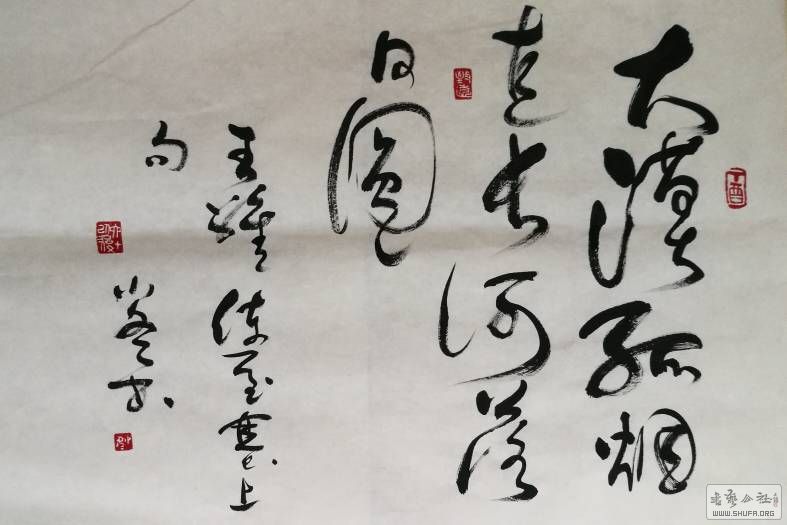 大漠孤烟
直长河落
日圆
王维使至塞上
句
书艺公社
WWW.SHUFA.ORG